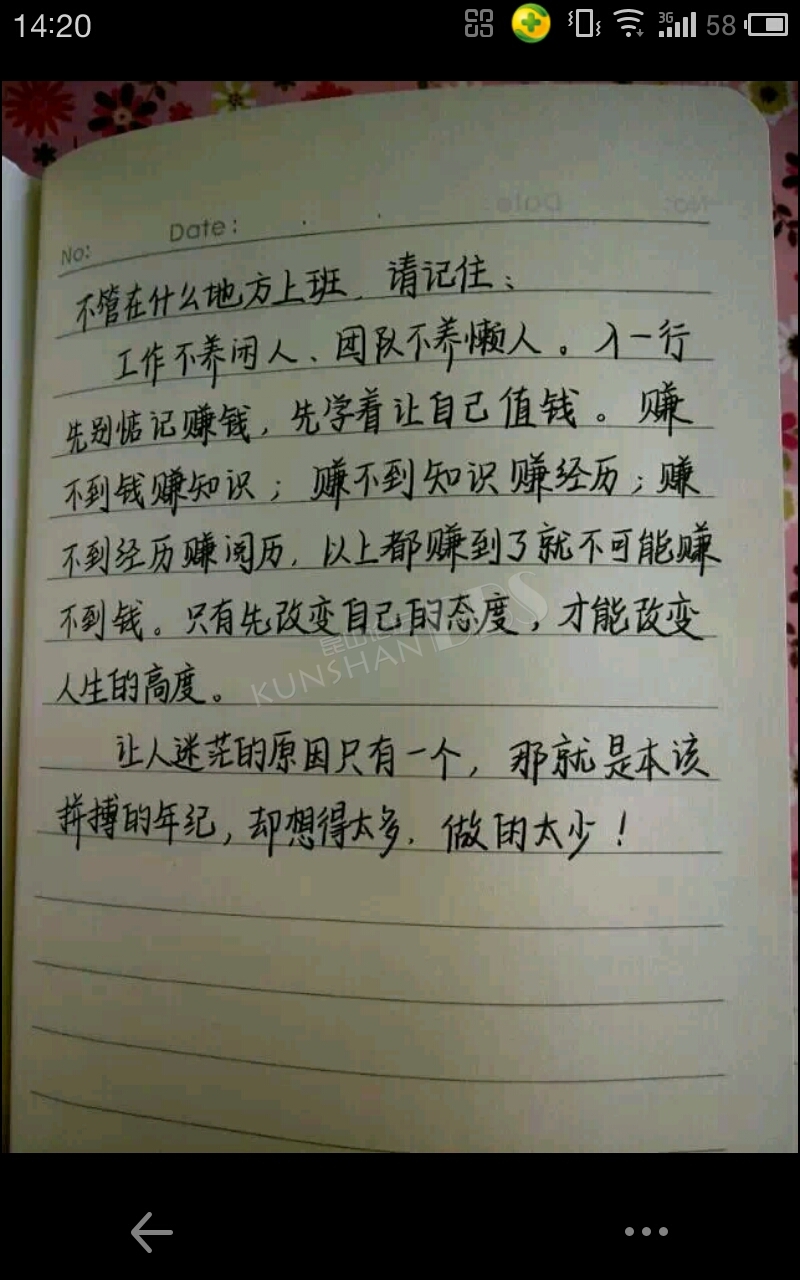 14:20
3G
58
No:
Date:
不管在什么地方上班，请记住：
工作不养闲人、团队不养懒人。入一行
先别惦记赚钱，先学着让自己值钱。赚
不到钱赚知识；赚不到知识赚经历；赚
不到经历赚阅历，以上都赚到了就不可能赚
不到钱。只有先改变自己的态度，才能改变
人生的高度。
KUNSHAN BBS
让人迷茫的原因只有一个，那就是本该
拼搏的年纪，却想得太多，做的太少！